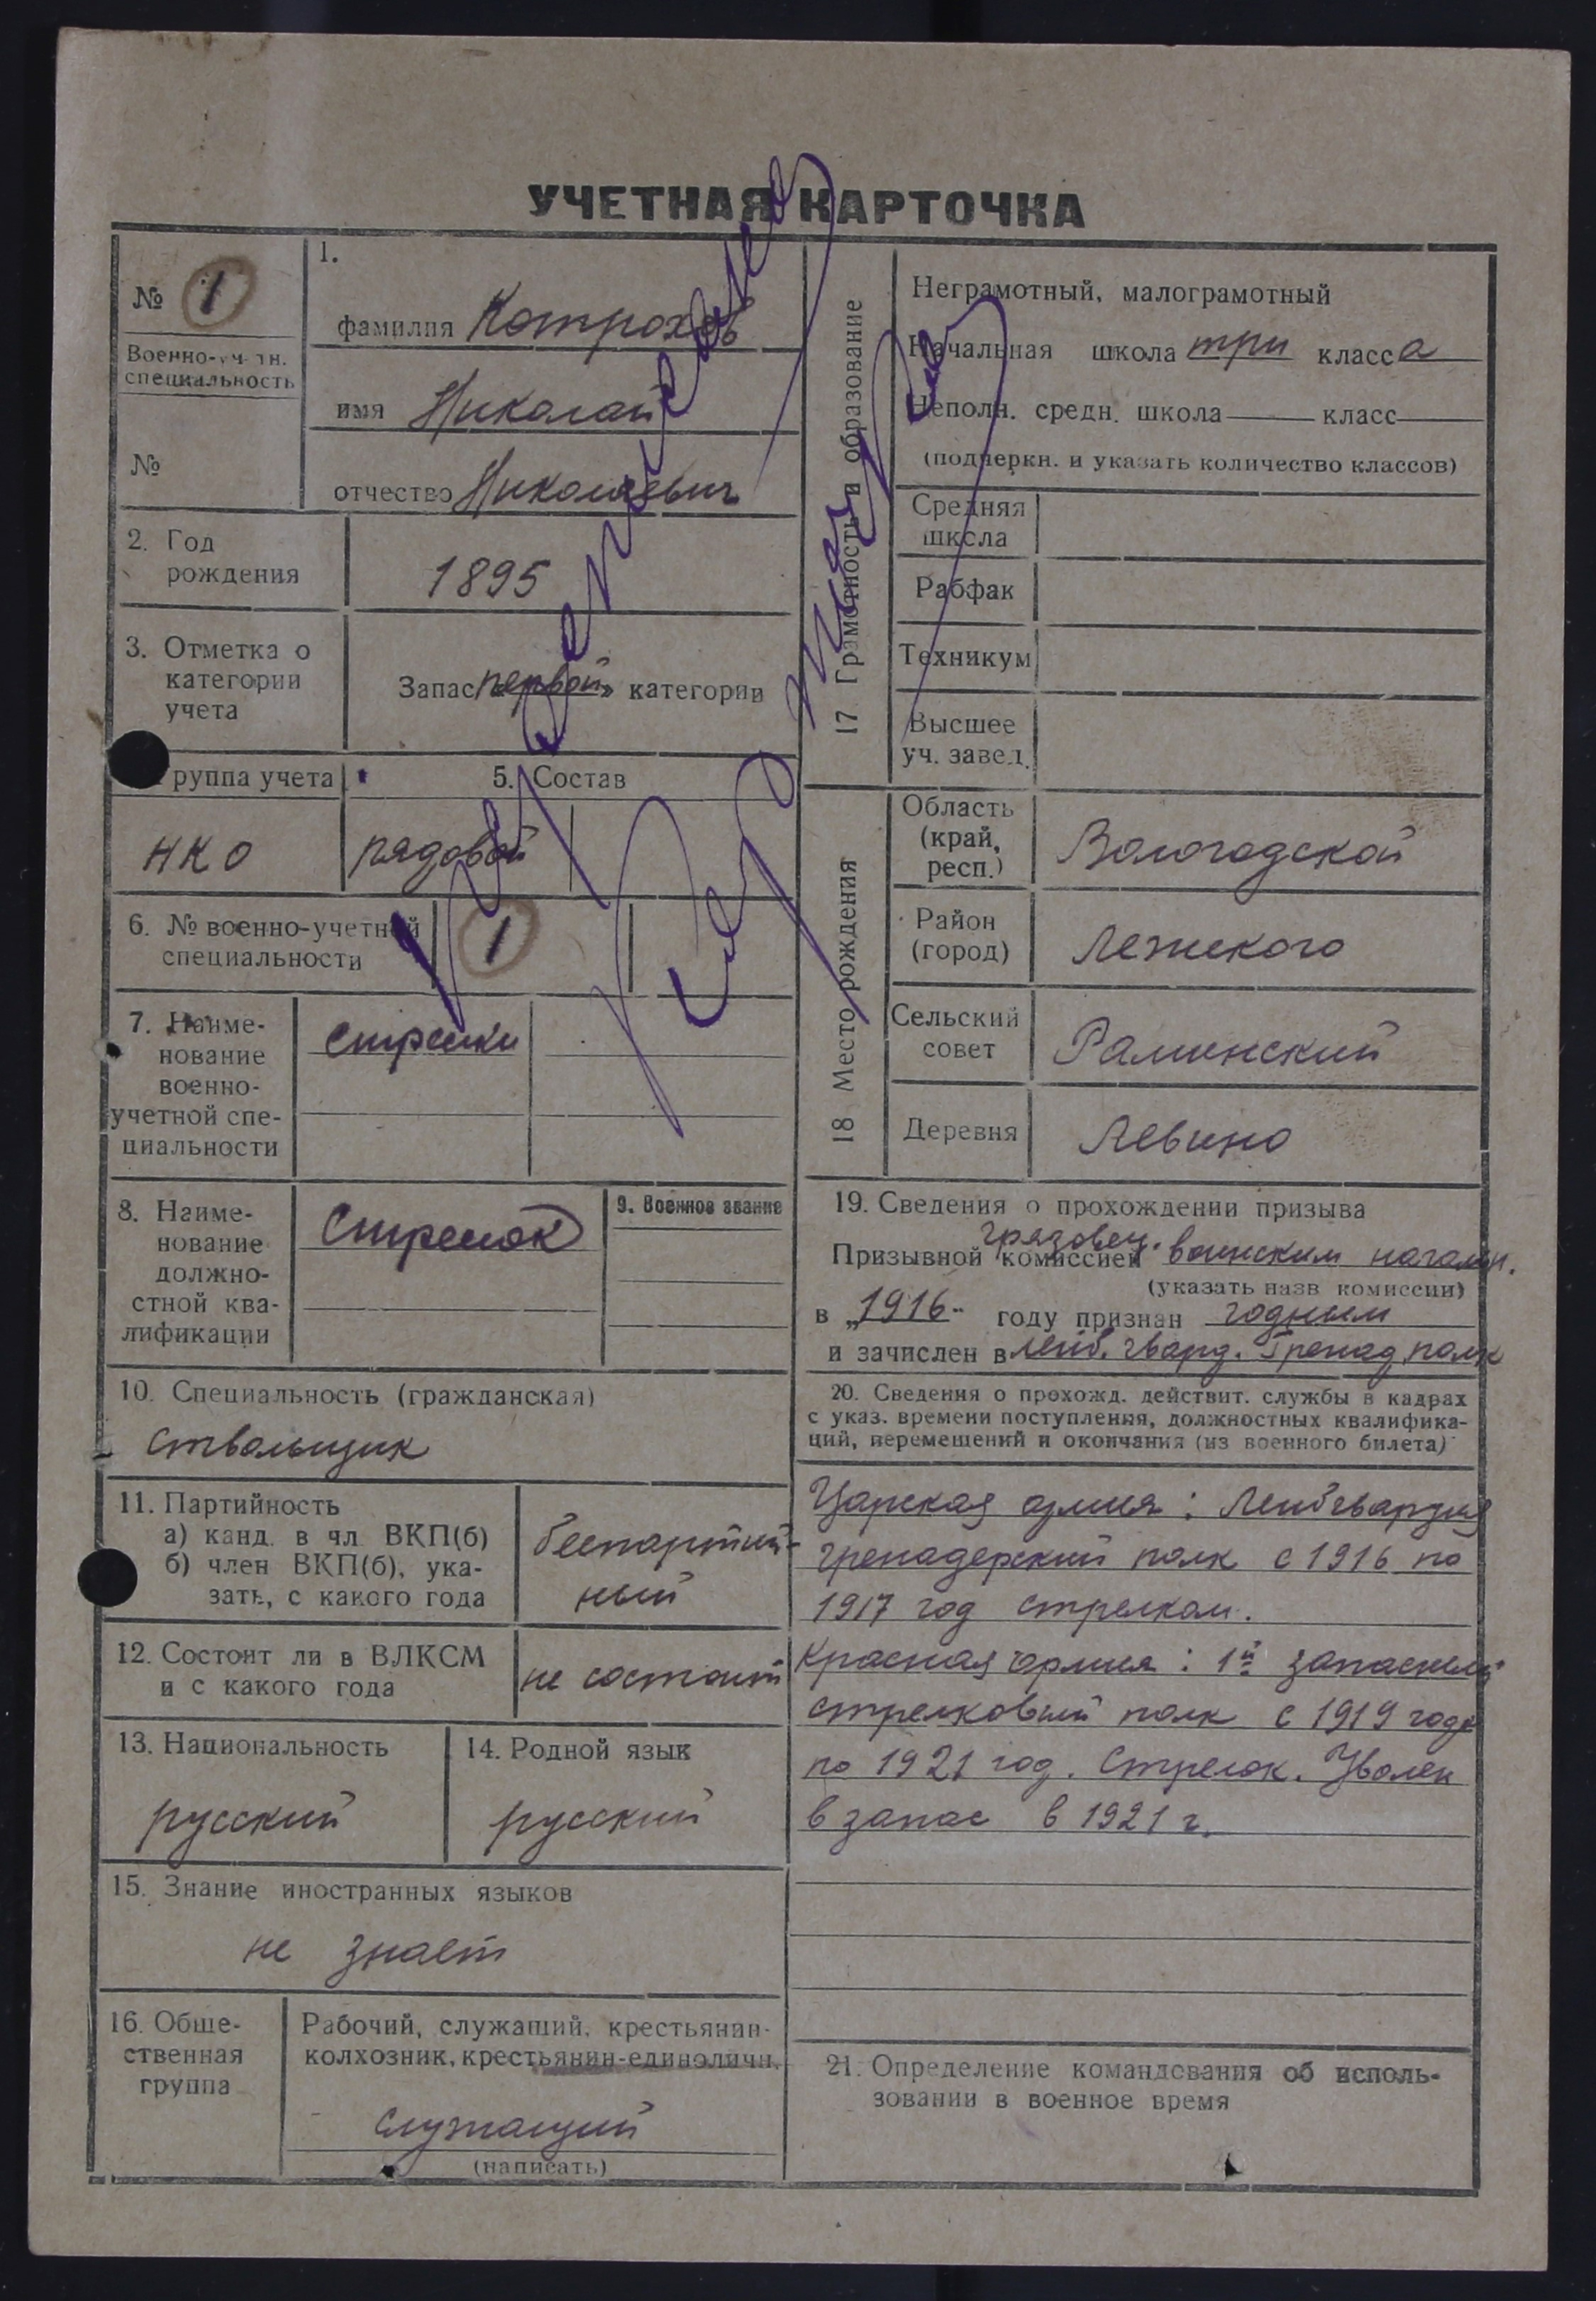 УЧЕТНАЯ КАРТОЧКА
№ 1
Военно-уч-тн.
специальность
№
1.
фамилия Катрохов
имя Николай
отчество Николаевич
2. Год
рождения
1895
3. Отметка о
категории
учета
Запас „первой“ категории
руппа учета
5. Состав
НКО
рядовой
6. № военно-учетной
специальности
1
7. Наиме-
нование
военно-
учетной спе-
циальности
стрелки
8. Наиме-
нование
должно-
стной ква-
лификации
Стрелок
9. Военное звание
10. Специальность (гражданская)
ствольщик
11. Партийность
а) канд. в чл. ВКП(б)
б) член ВКП(б), ука-
зать, с какого года
беспартий-
ный
12. Состоит ли в ВЛКСМ
и с какого года
не состоит
13. Национальность
русский
14. Родной язык
русский
15. Знание иностранных языков
не знает
16. Обще-
ственная
группа
Рабочий, служащий, крестьянин-
колхозник, крестьянин-единоличн.
служащий
(написать)
17 Грамотность и образование
Неграмотный, малограмотный
Начальная школа три класса
Неполн. средн. школа класс
(подчеркн. и указать количество классов)
Средняя
школа
Рабфак
Техникум
Высшее
уч. завед.
18 Место рождения
Область
(край,
респ.)
Вологодской
Район
(город)
Лежского
Сельский
совет
Раменский
Деревня
Левино
19. Сведения о прохождении призыва
Призывной комиссией Грязовец. воинским начальн.
(указать назв комиссии)
в „1916“ году признан годным
и зачислен в лейб. гвард. Гренад. полк
20. Сведения о прохожд. действит. службы в кадрах
с указ. времени поступления, должностных квалифика-
ций, перемещений и окончания (из военного билета)
Царская армия: Лейбгвардия
гренадерский полк с 1916 по
1917 год стрелком.
Красная армия: 1й запасный
стрелковый полк с 1919 года
по 1921 год. Стрелок. Уволен
в запас в 1921 г.
21. Определение командования об исполь-
зовании в военное время